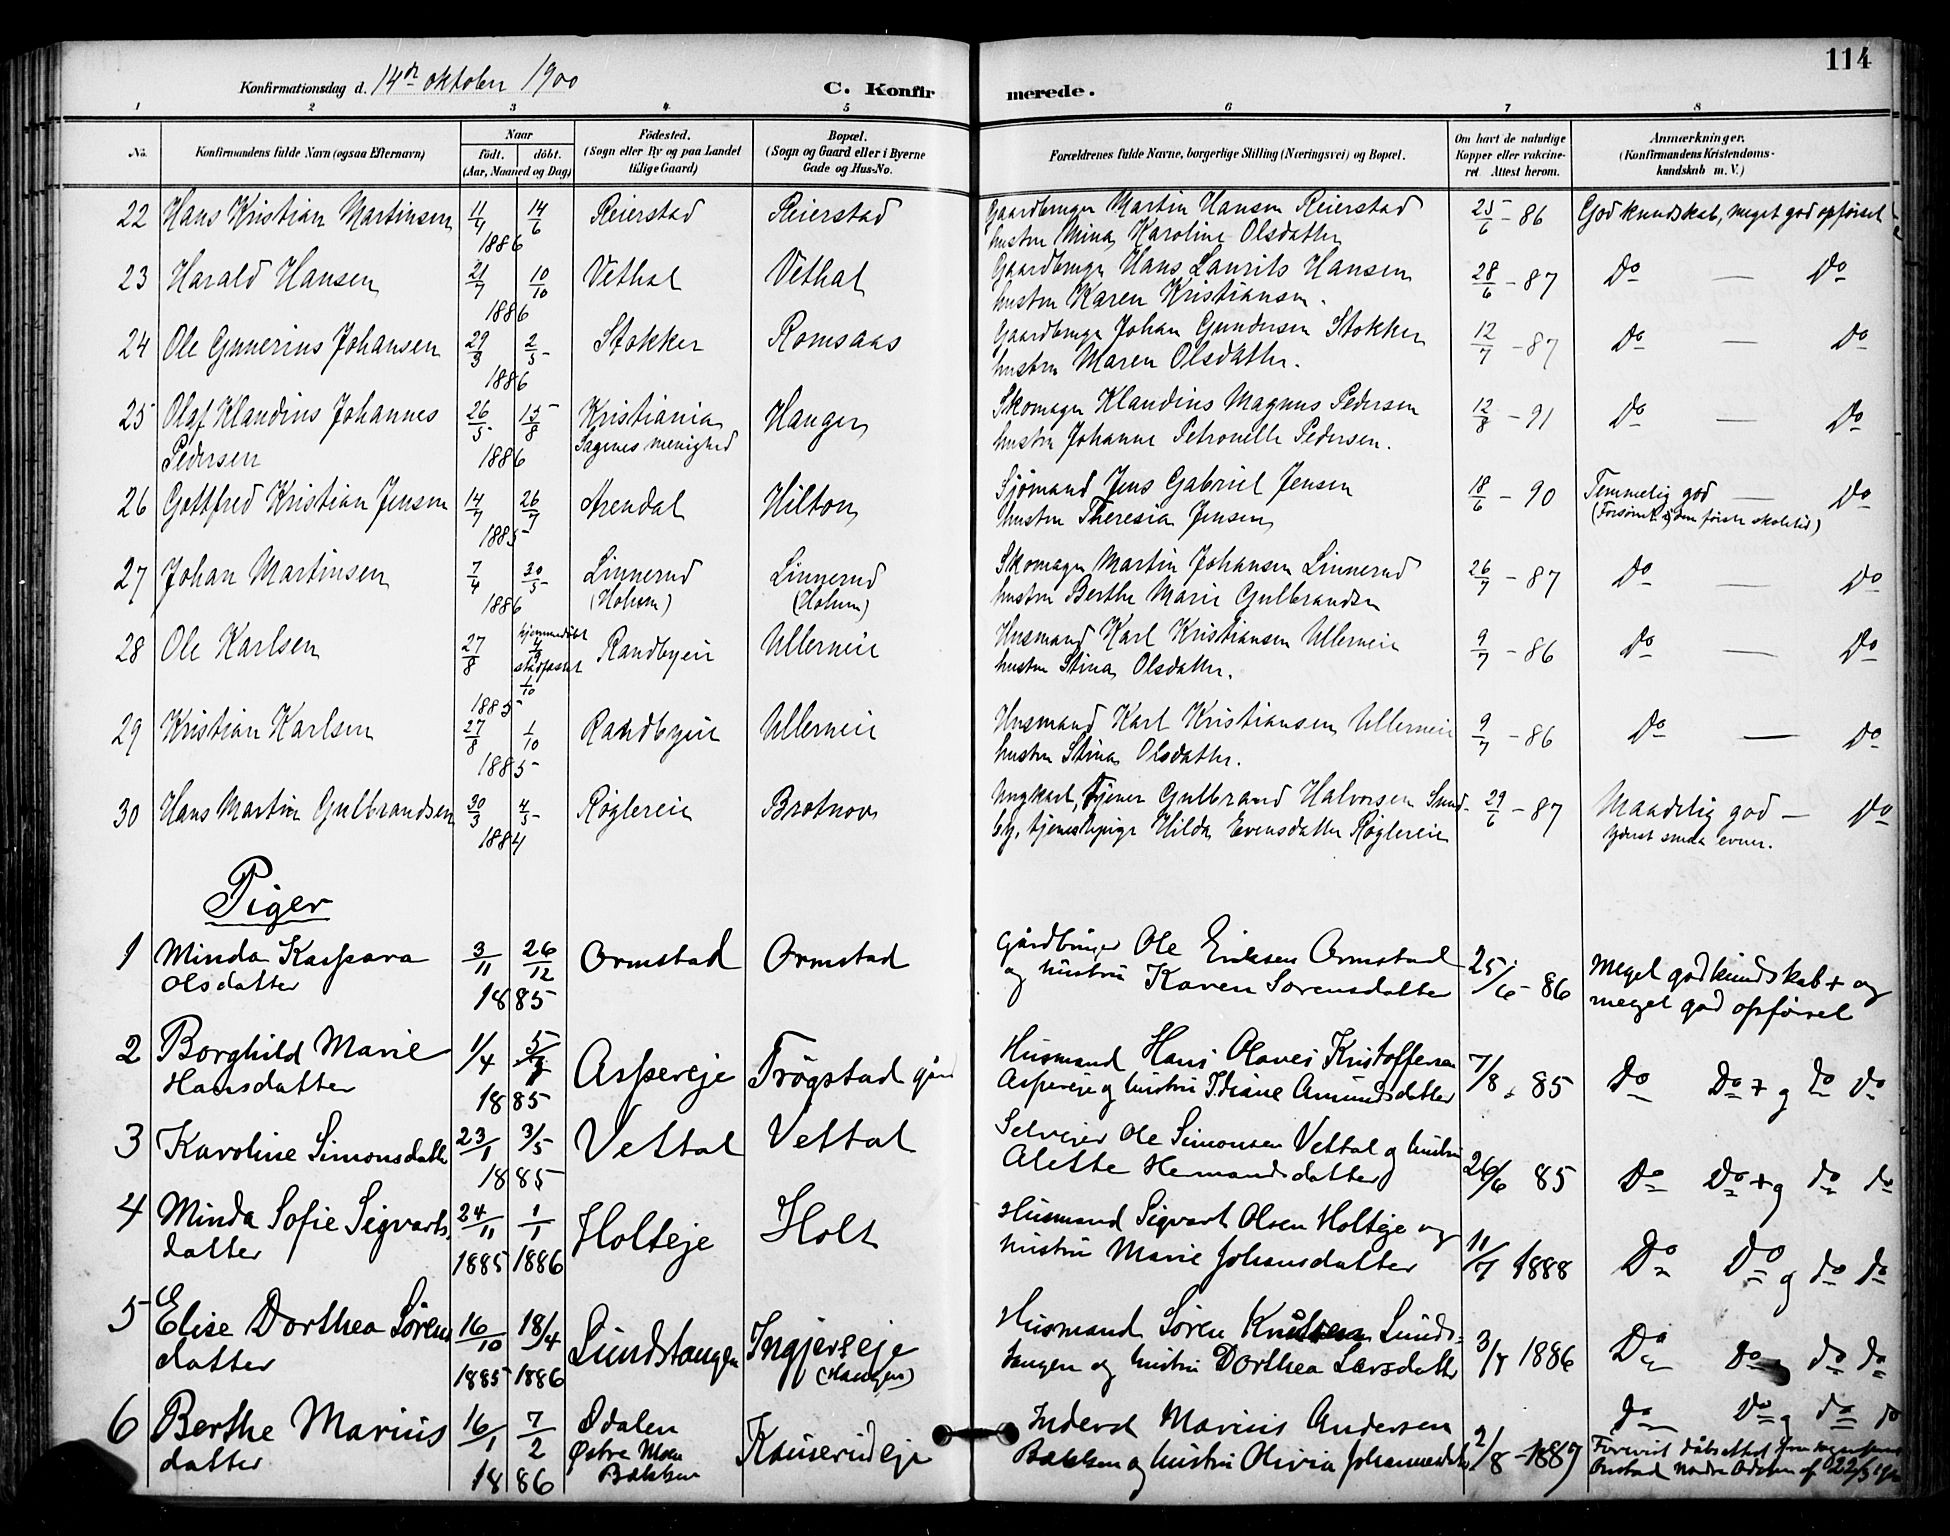 114
Konfirmationsdag d. 14de oktober 1900
C. Konfirmerede.
1 2 3 4 5 6 7 8
No. Konfirmandens fulde Navn (ogsaa Efternavn) Naar født. døbt. (Aar, Maaned og Dag) Fødested. (Sogn eller By og paa Landet tillige Gaard) Bopæl. (Sogn og Gaard eller i Byerne Gade og Hus-No. Forældrenes fulde Navne, borgerlige Stilling (Næringsvei) og Bopæl. Om havt de naturlige Kopper eller vakcineret. Attest herom. Anmærkninger, (Konfirmandens Kristendomskundskab m. V.)
22 Hans Kristian Martinsen 11/4 14/6 Reierstad Reierstad Gaardbruger Martin Hansen Reierstad 25/6 - 86 God kundskab, meget god opførsel
1886 hustru Mina Karoline Olsdatter
23 Harald Hansen 21/7 10/10 Vethal Vethal Gaardbruger Hans Laurits Hansen 28/6 - 87 Do — Do
1886 hustru Karen Kristiansen.
24 Ole Gunerius Johansen 29/3 2/5 Stokker Romsaas Gaardbruger Johan Gundersen Stokker 12/7 - 87 Do — Do
1886 hustru Maren Olsdatter.
25 Olaf Klaudius Johannes 26/5 15/8 Kristiania Hanger Skomager Klaudius Magnus Pedersen 12/8 - 91 Do — Do
Pedersen 1886 Sagenes menighed hustru Johanne Petronelle Pedersen.
26 Gottfred Kristian Jensen 14/7 26/7 Arendal Hilton Sjømand Jens Gabriel Jensen 18/6 - 90 Temmelig god — Do
1885 hustru Theresia Jensen (Forsømt i den første skoletid)
27 Johan Martinsen 7/4 30/5 Linnerud Linnerud Skomager Martin Johansen Linnerud 26/7 - 87 Do — Do
1886 (Holum) (Holum) hustru Berthe Marie Gulbrandsen
28 Ole Karlsen 27/8 hjemmedøbt 4/9 stadfæstet 1/10 Randbyeie Ullerneie Husmand Karl Kristiansen Ullerneie 9/7 - 86 Do — Do
1885 hustru Stina Olsdatter.
29 Kristian Karlsen 27/8 1/10 Randbyeie Ullerneie Husmand Karl Kristiansen Ullerneie 9/7 - 86 Do — Do
1885 hustru Stina Olsdatter.
30 Hans Martin Gulbrandsen 30/3 4/5 Røglereie Brotnov Ungkarl, tjener Gulbrand Halvorsen Sund- 29/6 - 87 Maadelig god — Do
1884 by, tjenestepige Hilda Evensdatter Røglereie yderst smaa evner.
Piger
1 Minda Kaspara 3/11 26/12 Ormstad Ormstad Gårdbruger Ole Eriksen Ormstad 25/6 - 86 Meget god kundskab + og
Olsdatter 1885 og hustru Karen Sørensdatter meget god opførsel
2 Borghild Marie 1/4 5/7 Aspereje Trøgstad gård Husmand Hans Olaves Kristoffersen 7/8 85 Do Do + g do do
Hansdatter 1885 Aspereje og hustru Idiane Amundsdatter
3 Karoline Simonsdatter 23/1 3/5 Vettal Vettal Selveier Ole Simonsen Vettal og hustru 26/6 85 Do Do + g do do
1885 Alette Hemandsdatter
4 Minda Sofie Sigvarts- 24/11 1/1 Holteje Holt Husmand Sigvart Olsen Holteje og 11/7 1888 Do Do g do do
datter 1885 1886 hustru Marie Johansdatter
5 Elise Dorthea Sørens 16/10 18/4 Lundstangen Ingjerseje Husmand Søren Knutsen Lunds- 3/7 1886 Do Do g do do
datter 1885 1886 (Hangen) tangen og hustru Dorthea Larsdatter
6 Berthe Marius 16/1 7/2 Odalen Kauserudeje Inderst Marius Andersen 2/8 - 1887 do Do g do do
datter 1886 Østre Moen Bakken Bakken og hustru Olivia Johannesdatter Forevist dåbsattest fra sognepræst